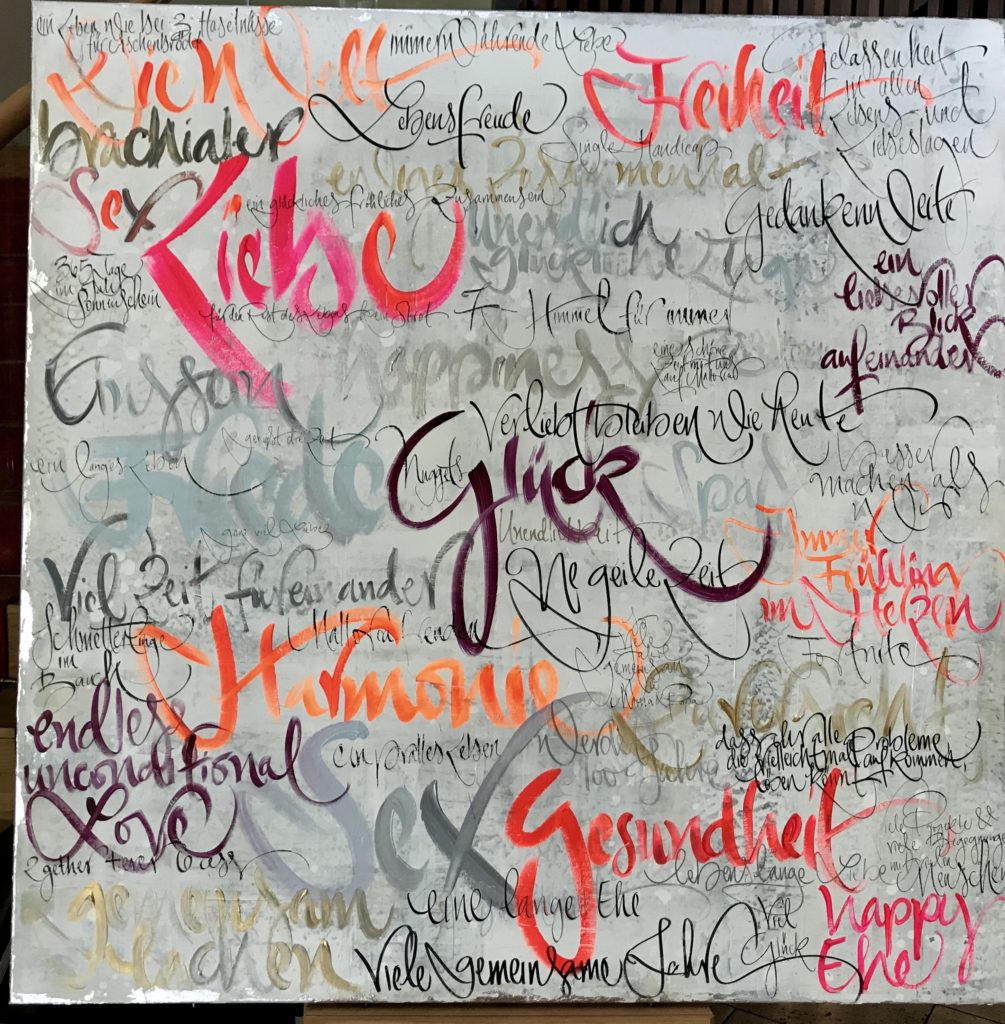 ein Leben wie bei 3 Haselnüsse
für Aschenbrödel
immerwährende Liebe
Gelassenheit
in allen
Lebens- und
Liebeslagen
Freiheit
Lebensfreude
brachialer
Sex
Single Handicap
Liebe
ein glückliches fröhliches Zusammensein
unendlich
glückliche
Gedankenweite
365 Tage
im Jahr
Sonnenschein
ein
liebevoller
Blick
aufeinander
für den Rest des Lebens kein Streit
7. Himmel für immer
Happiness
eine schöne
Zeit mit uns
Verliebt bleiben wie heute
genießt die Zeit
ein langes Leben
Friede
Nuggets
Glück
Spaß
besser
machen als
Unendlichkeit
Viel Zeit füreinander
Ne geile Zeit
Immer
Frühling
im Herzen
Schmetterlinge
im
Bauch
Harmonie
gemeinsam
endless
unconditional
Love
ein pralles Leben
werdet
100 Jahre
dass ihr alle Probleme,
die vielleicht mal aufkommen,
lösen könnt
Sex
Gesundheit
viele Projekte &
viele Begegnungen
mit vielen
Menschen
lebenslange Liebe
2gether 4ever
gemeinsam
lachen
eine lange Ehe
Viele gemeinsame Jahre
Viel
Glück
happy
Ehe